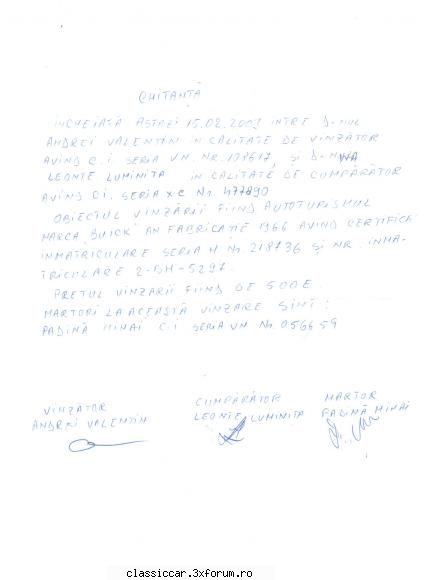 CHITANȚĂ
ÎNCHEIATĂ ASTĂZI 15.02.2009 INTRE D-NUL
ANDREI VALENTIN IN CALITATE DE VINZĂTOR
AVIND C.i. SERIA VN. NR. 108617, ȘI D-NWA
LEONTE LUMINITA IN CALITATE DE CUMPĂRĂTOR
AVIND Ci. SERIA XC Nr. 477890
OBIECTUL VINZĂRII FIIND AUTOTURISMUL
MARCA "BUICK" AN FABRICATIE 1966 AVIND CERTIFICA
INMATRICULARE SERIA H Nr 218736 ȘI NR. INMA-
TRICULARE 2-BH-5297.
PRETUL VINZARII FIIND DE 500E.
MARTORI LA ACEASTĂ VINZARE SINT:
PADINĂ MIHAI C.i SERIA VN Nr. 056659
VINZĂTOR CUMPĂRĂTOR MARTOR
ANDREI VALENTIN LEONTE LUMINITA PADINĂ MIHAI
classiccar.3xforum.ro